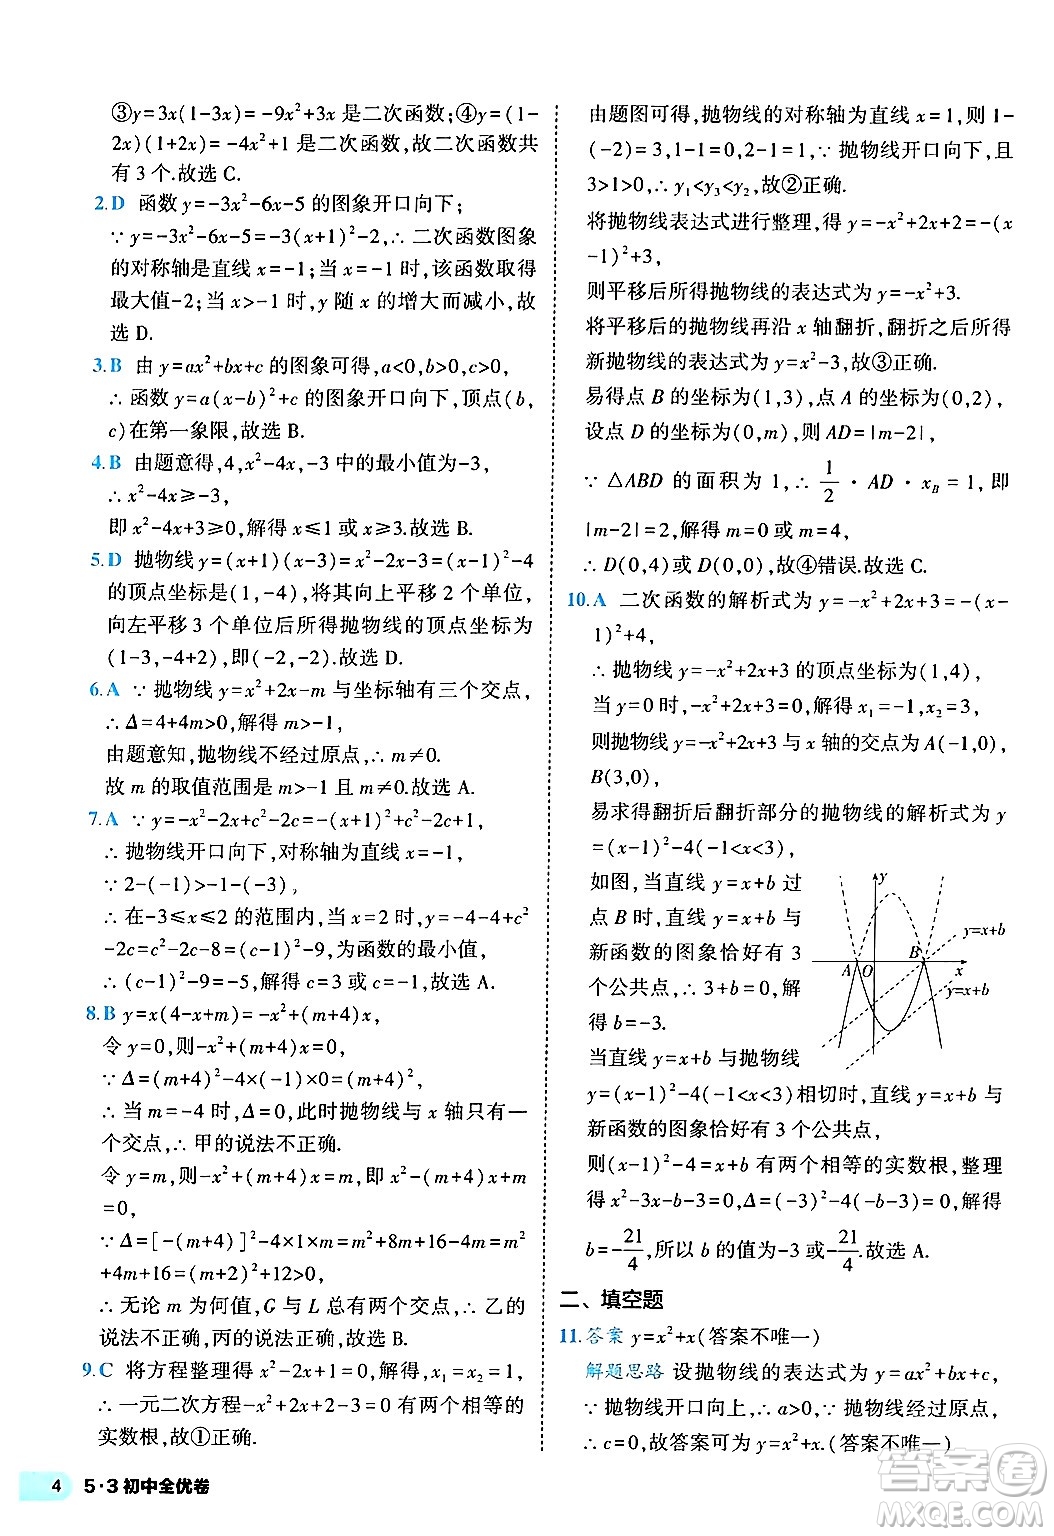 ③y=3x(1-3x)=-9x²+3x 是二次函数;④y=(1-
2x)(1+2x)=-4x²+1 是二次函数,故二次函数共
有 3 个.故选 C.
2.D 函数 y=-3x²-6x-5 的图象开口向下;
∵ y=-3x²-6x-5=-3(x+1)²-2,∴ 二次函数图象
的对称轴是直线 x=-1;当 x=-1 时,该函数取得
最大值-2;当 x>-1 时,y 随 x 的增大而减小,故
选 D.
3.B 由 y=ax²+bx+c 的图象可得,a<0,b>0,c>0,
∴ 函数 y=a(x-b)²+c 的图象开口向下,顶点(b,
c)在第一象限,故选 B.
4.B 由题意得,4,x²-4x,-3 中的最小值为-3,
∴ x²-4x≥-3,
即 x²-4x+3≥0,解得 x≤1 或 x≥3.故选 B.
5.D 抛物线 y=(x+1)(x-3)=x²-2x-3=(x-1)²-4
的顶点坐标是(1,-4),将其向上平移 2 个单位,
向左平移 3 个单位后所得抛物线的顶点坐标为
(1-3,-4+2),即(-2,-2).故选 D.
6.A ∵ 抛物线 y=x²+2x-m 与坐标轴有三个交点,
∴ Δ=4+4m>0,解得 m>-1,
由题意知,抛物线不经过原点,∴ m≠0.
故 m 的取值范围是 m>-1 且 m≠0.故选 A.
7.A ∵ y=-x²-2x+c²-2c=-(x+1)²+(c-1)²,
∴ 抛物线开口向下,对称轴为直线 x=-1,
∵ 2-(-1)>-1-(-3),
∴ 在-3≤x≤2 的范围内,当 x=2 时,y=-4-4+c²
-2c=-8+c²-2c=(c-1)²-9,为函数的最小值,
∴ (c-1)²-9=-5,解得 c=3 或 c=-1.故选 A.
8.B y=x(4-x+m)=-x²+(4+m)x,
令 y=0,则-x²+(4+m)x=0,
∵ Δ=(m+4)²-4×(-1)×0=(m+4)²,
∴ 当 m=-4 时,Δ=0,此时抛物线与 x 轴只有一
个交点,∴ 甲的说法不正确.
令 y=m,则-x²+(m+4)x=m,即 x²-(m+4)x+m
=0,
∵ Δ=[-(m+4)]²-4×1×m=m²+8m+16-4m=m²
+4m+16=(m+2)²+12>0,
∴ 无论 m 为何值,G 与 L 总有两个交点,∴ 乙的
说法不正确,丙的说法正确.故选 B.
9.C 将方程整理得 x²-2x+1=0,解得,x₁=x₂=1,
∴ 一元二次方程-x²+2x+2-3=0 有两个相等的
实数根,故①正确.
由题图可得,抛物线的对称轴为直线 x=1,则 1-
(-2)=3,1-1=0,3-1=2,∵ 抛物线开口向下,且
3>1>0,∴ y₁<y₃<y₂,故②正确.
将抛物线表达式进行整理,得 y=-x²+2x+2=-(x
-1)²+3,
则平移后所得抛物线的表达式为 y=-x²+3.
将平移后的抛物线再沿 x 轴翻折,翻折后所得
新抛物线的表达式为 y=x²-3,故③正确.
易得点 B 的坐标为(1,3),点 A 的坐标为(0,2),
设点 D 的坐标为(0,m),则 AD=|m-2|,
∵ △ABD 的面积为 1,∴ 1/2 · AD · x_B=1,即
|m-2|=2,解得 m=0 或 m=4,
∴ D(0,4)或 D(0,0),故④错误.故选 C.
10.A 二次函数的解析式为 y=-x²+2x+3=-(x-
1)²+4,
∴ 抛物线 y=-x²+2x+3 的顶点坐标为(1,4),
当 y=0 时,-x²+2x+3=0,解得 x₁=-1,x₂=3,
则抛物线 y=-x²+2x+3 与 x 轴的交点为 A(-1,0),
B(3,0).
易求得翻折后翻折部分的抛物线的解析式为 y
=(x-1)²-4(-1<x<3),
如图,当直线 y=x+b 过
点 B 时,直线 y=x+b 与
新函数的图象恰好有 3
个公共点,∴ 3+b=0,解
得 b=-3.
y
y=x+b
A O B x
y=x+b
当直线 y=x+b 与抛物线
y=(x-1)²-4(-1<x<3)相切时,直线 y=x+b 与
新函数的图象恰好有 3 个公共点,
则(x-1)²-4=x+b 有两个相等的实数根,整理
得 x²-3x-b-3=0,Δ=(-3)²-4(-b-3)=0,解得
b=-21/4,所以 b 的值为-3 或-21/4.故选 A.
二、填空题
11.答案 y=x²+x(答案不唯一)
解题思路 设抛物线的表达式为 y=ax²+bx+c,
∵ 抛物线开口向上,∴ a>0,∵ 抛物线经过原点,
∴ c=0,故答案可为 y=x²+x.(答案不唯一)
4 5·3 初中全优卷
答案圈
MXQE.COM